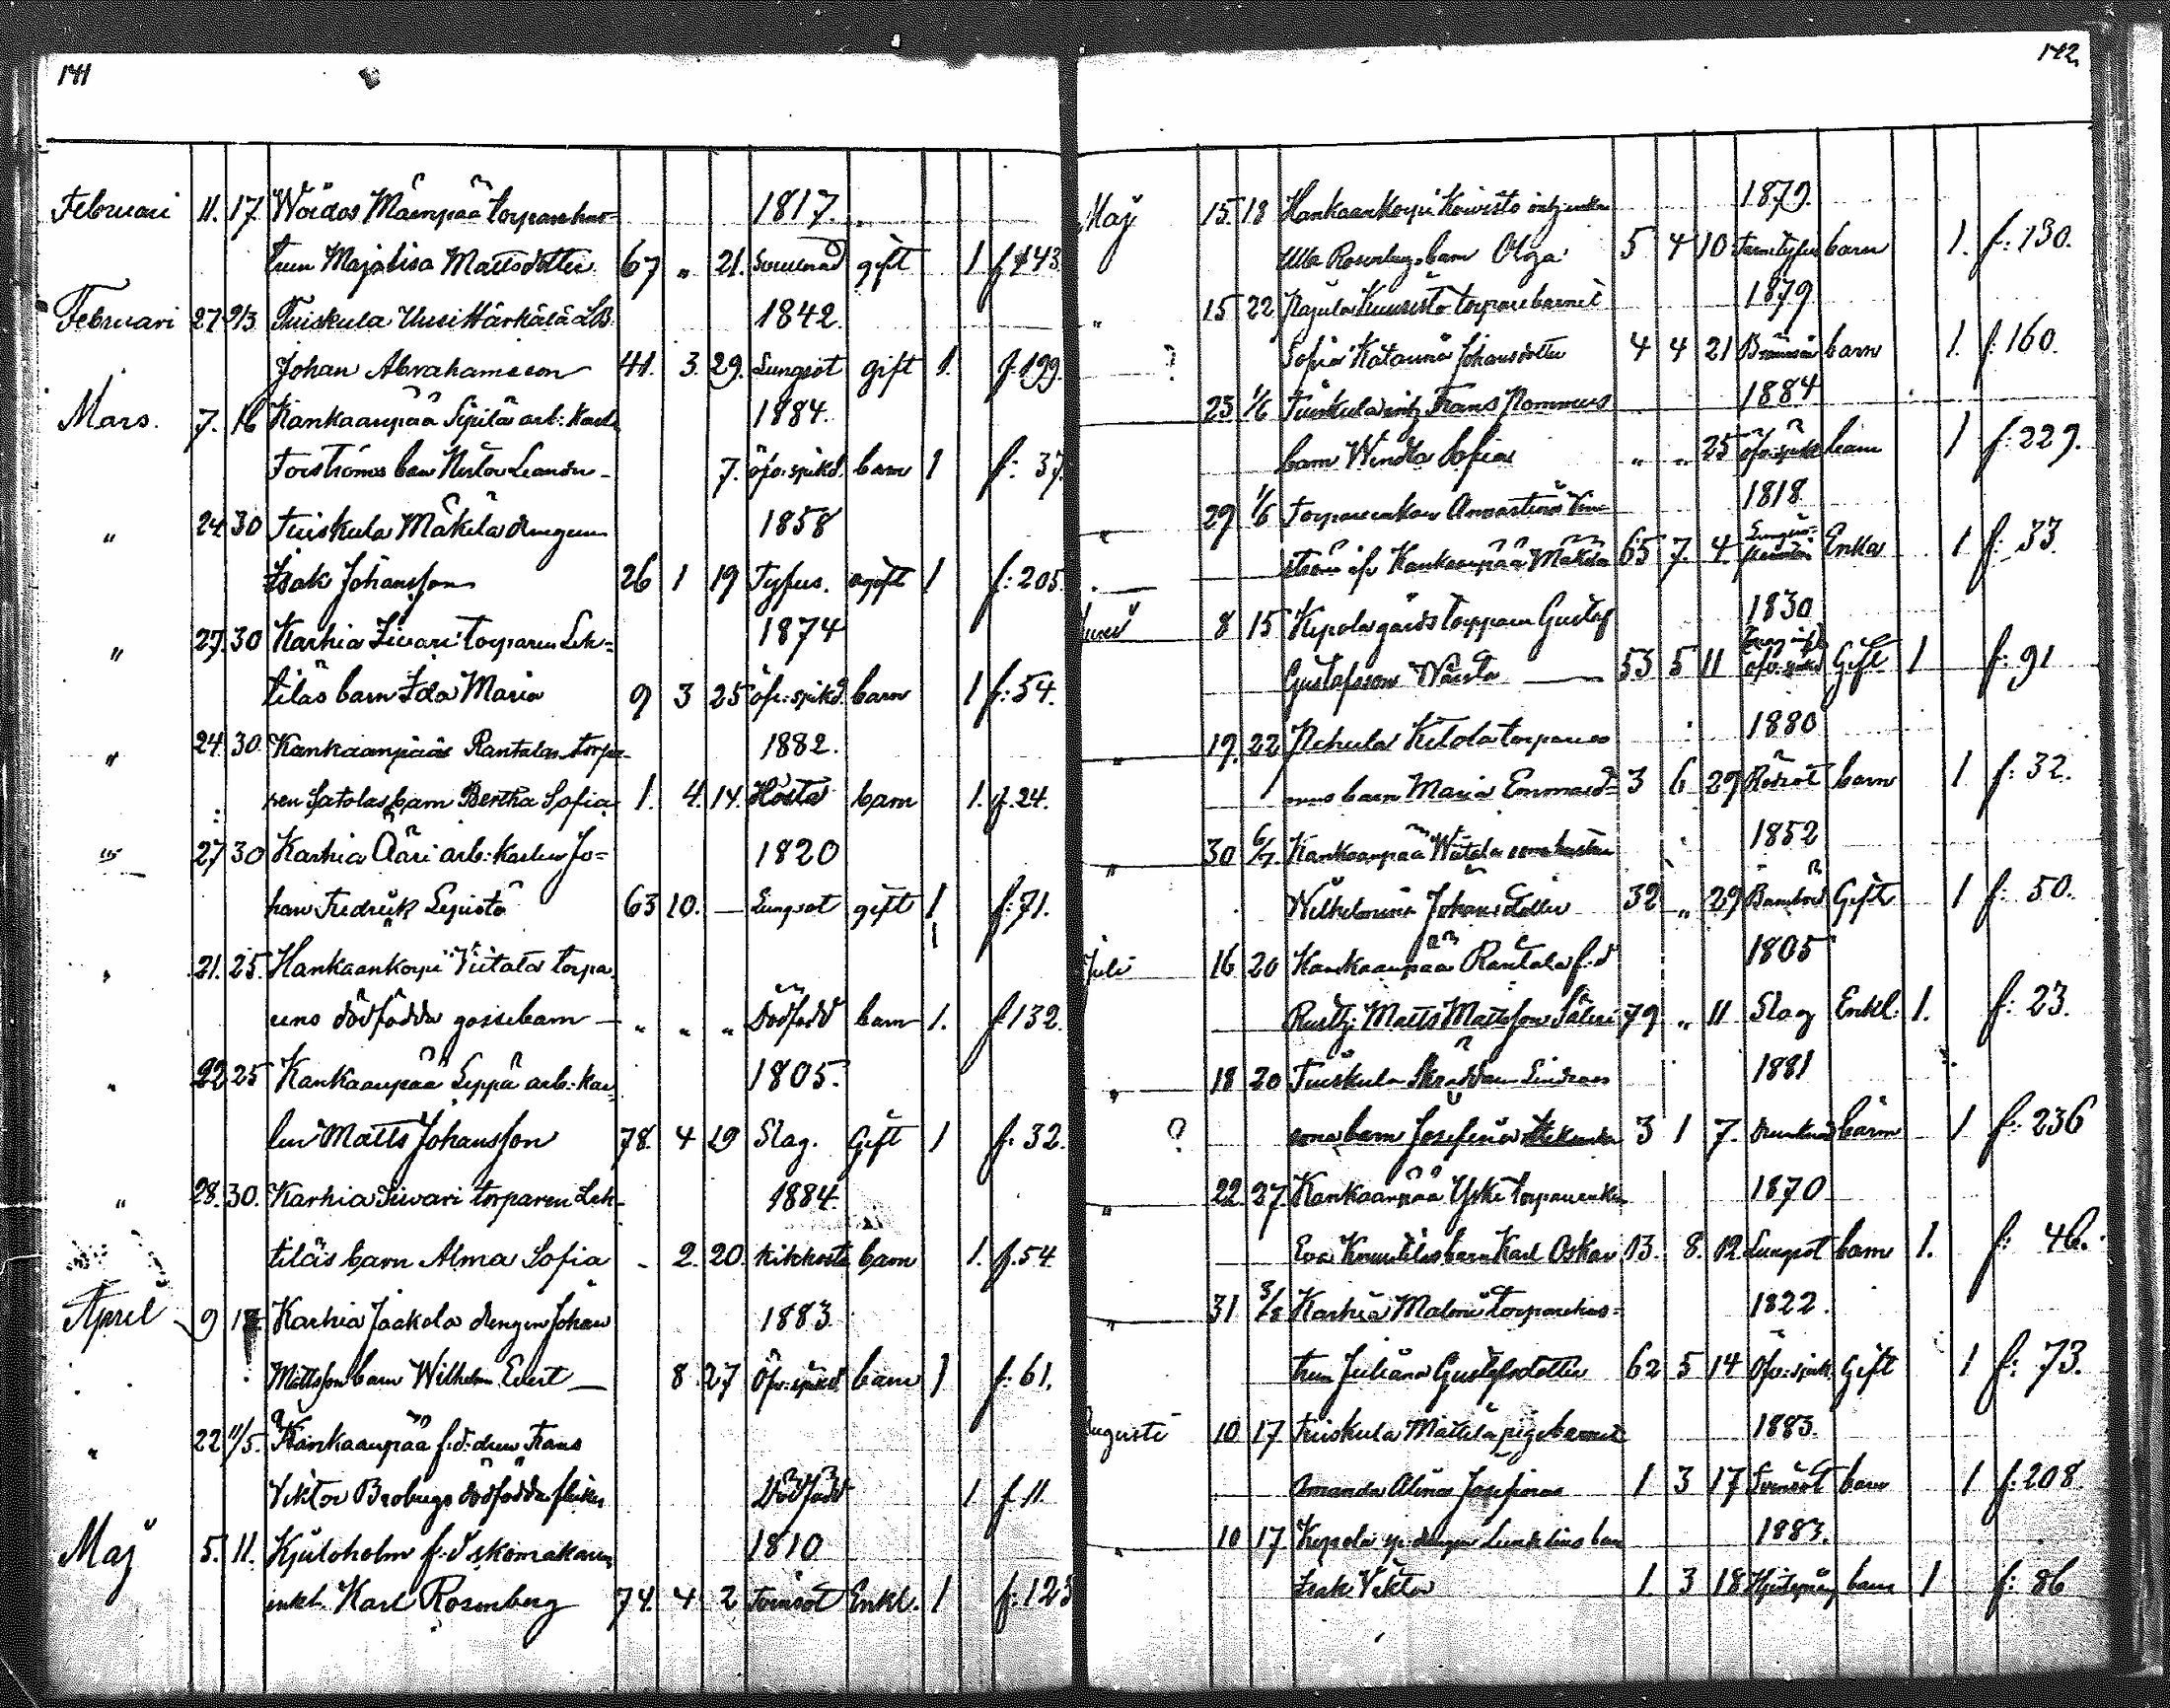 141
Februari 11. 17. Woidos Mäenpää torparehus-
1817.
trun Majalisa Mattsdotter 67 „ 21. gift 1 f 143.
Februari 27 9/3 Tuiskula Uusi Härkälä
1842.
Johan Abrahamsson 41. 3. 29. Lungsot gift 1. f. 199.
Mars. 7. 16 Kankaanpää Sipilä arb: karl
1884.
Forströms barn Nestor Leander 7. öfv: spikd. barn 1 f: 37.
„ 24 30 Tuiskula Mäkelä drengen
1858
Isak Johansson 26 1 19 Tyfus. ogift 1 f: 205
„ 27. 30 Karhia Siivari torparen Leh-
1874
tiläs barn Ida Maria 9 3 25 öfv: spikd. barn 1 f: 54.
„ 24. 30. Kankaanpää Rantalan torpa-
1882.
ren Satolas barn Bertha Sofia 1. 4. 14. Hosta barn 1. f. 24.
27 30 Karhia Ääri arb: karlen Jo-
1820
han Fredrik Lepistö 63 10. — Lungsot gift 1 f: 71.
21. 25. Hankaankorpi Viitala torpa
rens dödfödda gossebarn „ „ „ Dödfödd barn 1. f 132.
„ 22 25 Kankaanpää Seppä arb: kar-
1805.
len Matts Johansson 78. 4 19 Slag. Gift 1 f: 32.
„ 28. 30. Karhia Siivari torparen Leh-
1884.
tiläs barn Alma Sofia - 2. 20. kikhosta barn 1. f. 54
April 9 Karhia Jaakola drengen Johan
1883.
Mattsson barn Wilhelm Evert 8 27 Öfv: spikd. barn 1 f: 61.
„ 22 11/5. Kankaanpää f.d: dren Frans
Viktor Brobergs dödfödda flicka Dödfödd 1 f 11.
Maj 5. 11. Kjuloholm f: d skomakaren
1810
enkl. Karl Rosenberg 74. 4 2 Tvinsot Enkl. 1 f: 123
142.
Maj 15. 18 Hankaankorpi Koivisto
1879.
Ulla barn Olga 5 4 10 barn 1. f: 130.
„ 15 22 torparebarnet
1879
Sofia Katarina Johansdotter 4 4 21 barn 1. f: 160.
25 1/6 Tuiskula Frans Nommus
1884
barn Wendla Sofia „ „ 25 öfv: spikd barn 1 f: 229.
„ 29 1/6 Torpareenkan
1818
ström ifr Kankaanpää Mäkelä 65 7. 4. Enka 1 f: 33.
Juni 8 15 Kepola gårds torparen Gustaf
1830
Gustafsson 53 5 11 öfv: spikd Gift 1 f: 91
„ 19. 22 Ketola torpare
1880
ens barn Maria Emma 3 6 29 Rödsot barn 1 f: 32.
„ 30 6/7. Kankaanpää
1852
Wilhelmina Johansdotter 32 „ 29 Barnbörd Gift 1 f: 50.
Juli 16 20 Kankaanpää Rantala f: d
1805
Rustj: Matts Mattsson Säteri 79 „ 11 Slag Enkl. 1. f: 23.
„ 18 20 Tuiskula Skräddare
1881
sons barn Josefina 3 1 7. Drunknad barn 1 f: 236
„ 22. 27. Kankaanpää Yski torpareenkan
1870
Eva barn Karl Oskar 13. 8. 12. Lungsot barn 1. f: 46.
„ 31 3/8 Karhia Malmi torparehus-
1822.
trun Juliana Gustafsdotter 62 5 14 Öfv: spik. Gift 1 f: 73.
Augusti 10 17 Tuiskula Mattila pigebarnet
1883.
Amanda Alina Josefina 1 3 17 Tvinsot barn 1 f: 208.
„ 10 17 Kepola
1883.
Isak Viktor 1. 3 18 barn 1 f: 86